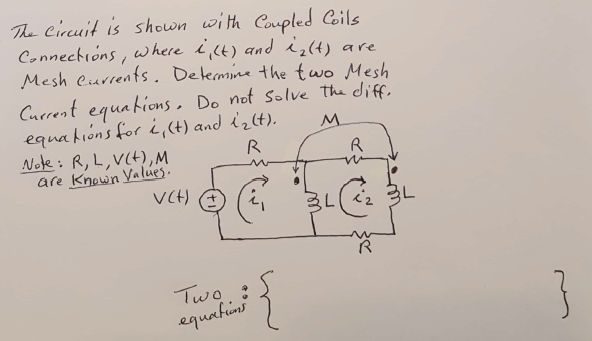 The Circuit is shown with Coupled Coils
Connections, where i₁(t) and i₂(t) are
Mesh Currents. Determine the two Mesh
Current equations. Do not Solve the diff.
equations for i₁(t) and i₂(t).
Note: R, L, V(t), M
are Known Values.
M
R
R
V(t)
+
-
i₁
L
i₂
L
R
Two
equations : {
}